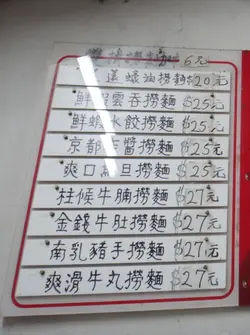 6元
蠔油撈麵 $20元
鮮蝦雲吞撈麵 $25元
鮮蝦水餃撈麵 $25元
京都炸醬撈麵 $25元
爽口魚旦撈麵 $25元
柱候牛腩撈麵 $27元
金錢牛肚撈麵 $27元
南乳豬手撈麵 $27元
爽滑牛丸撈麵 $27元